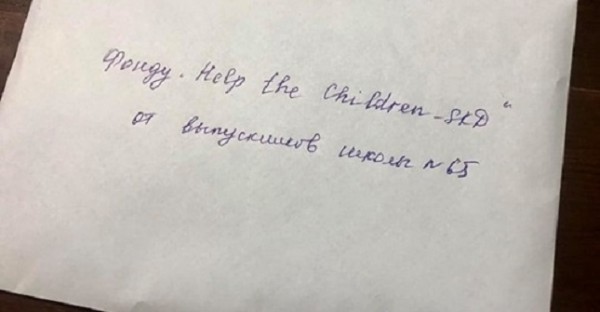 Фонду. Help the Children-SKD"
от выпускников школы № 65